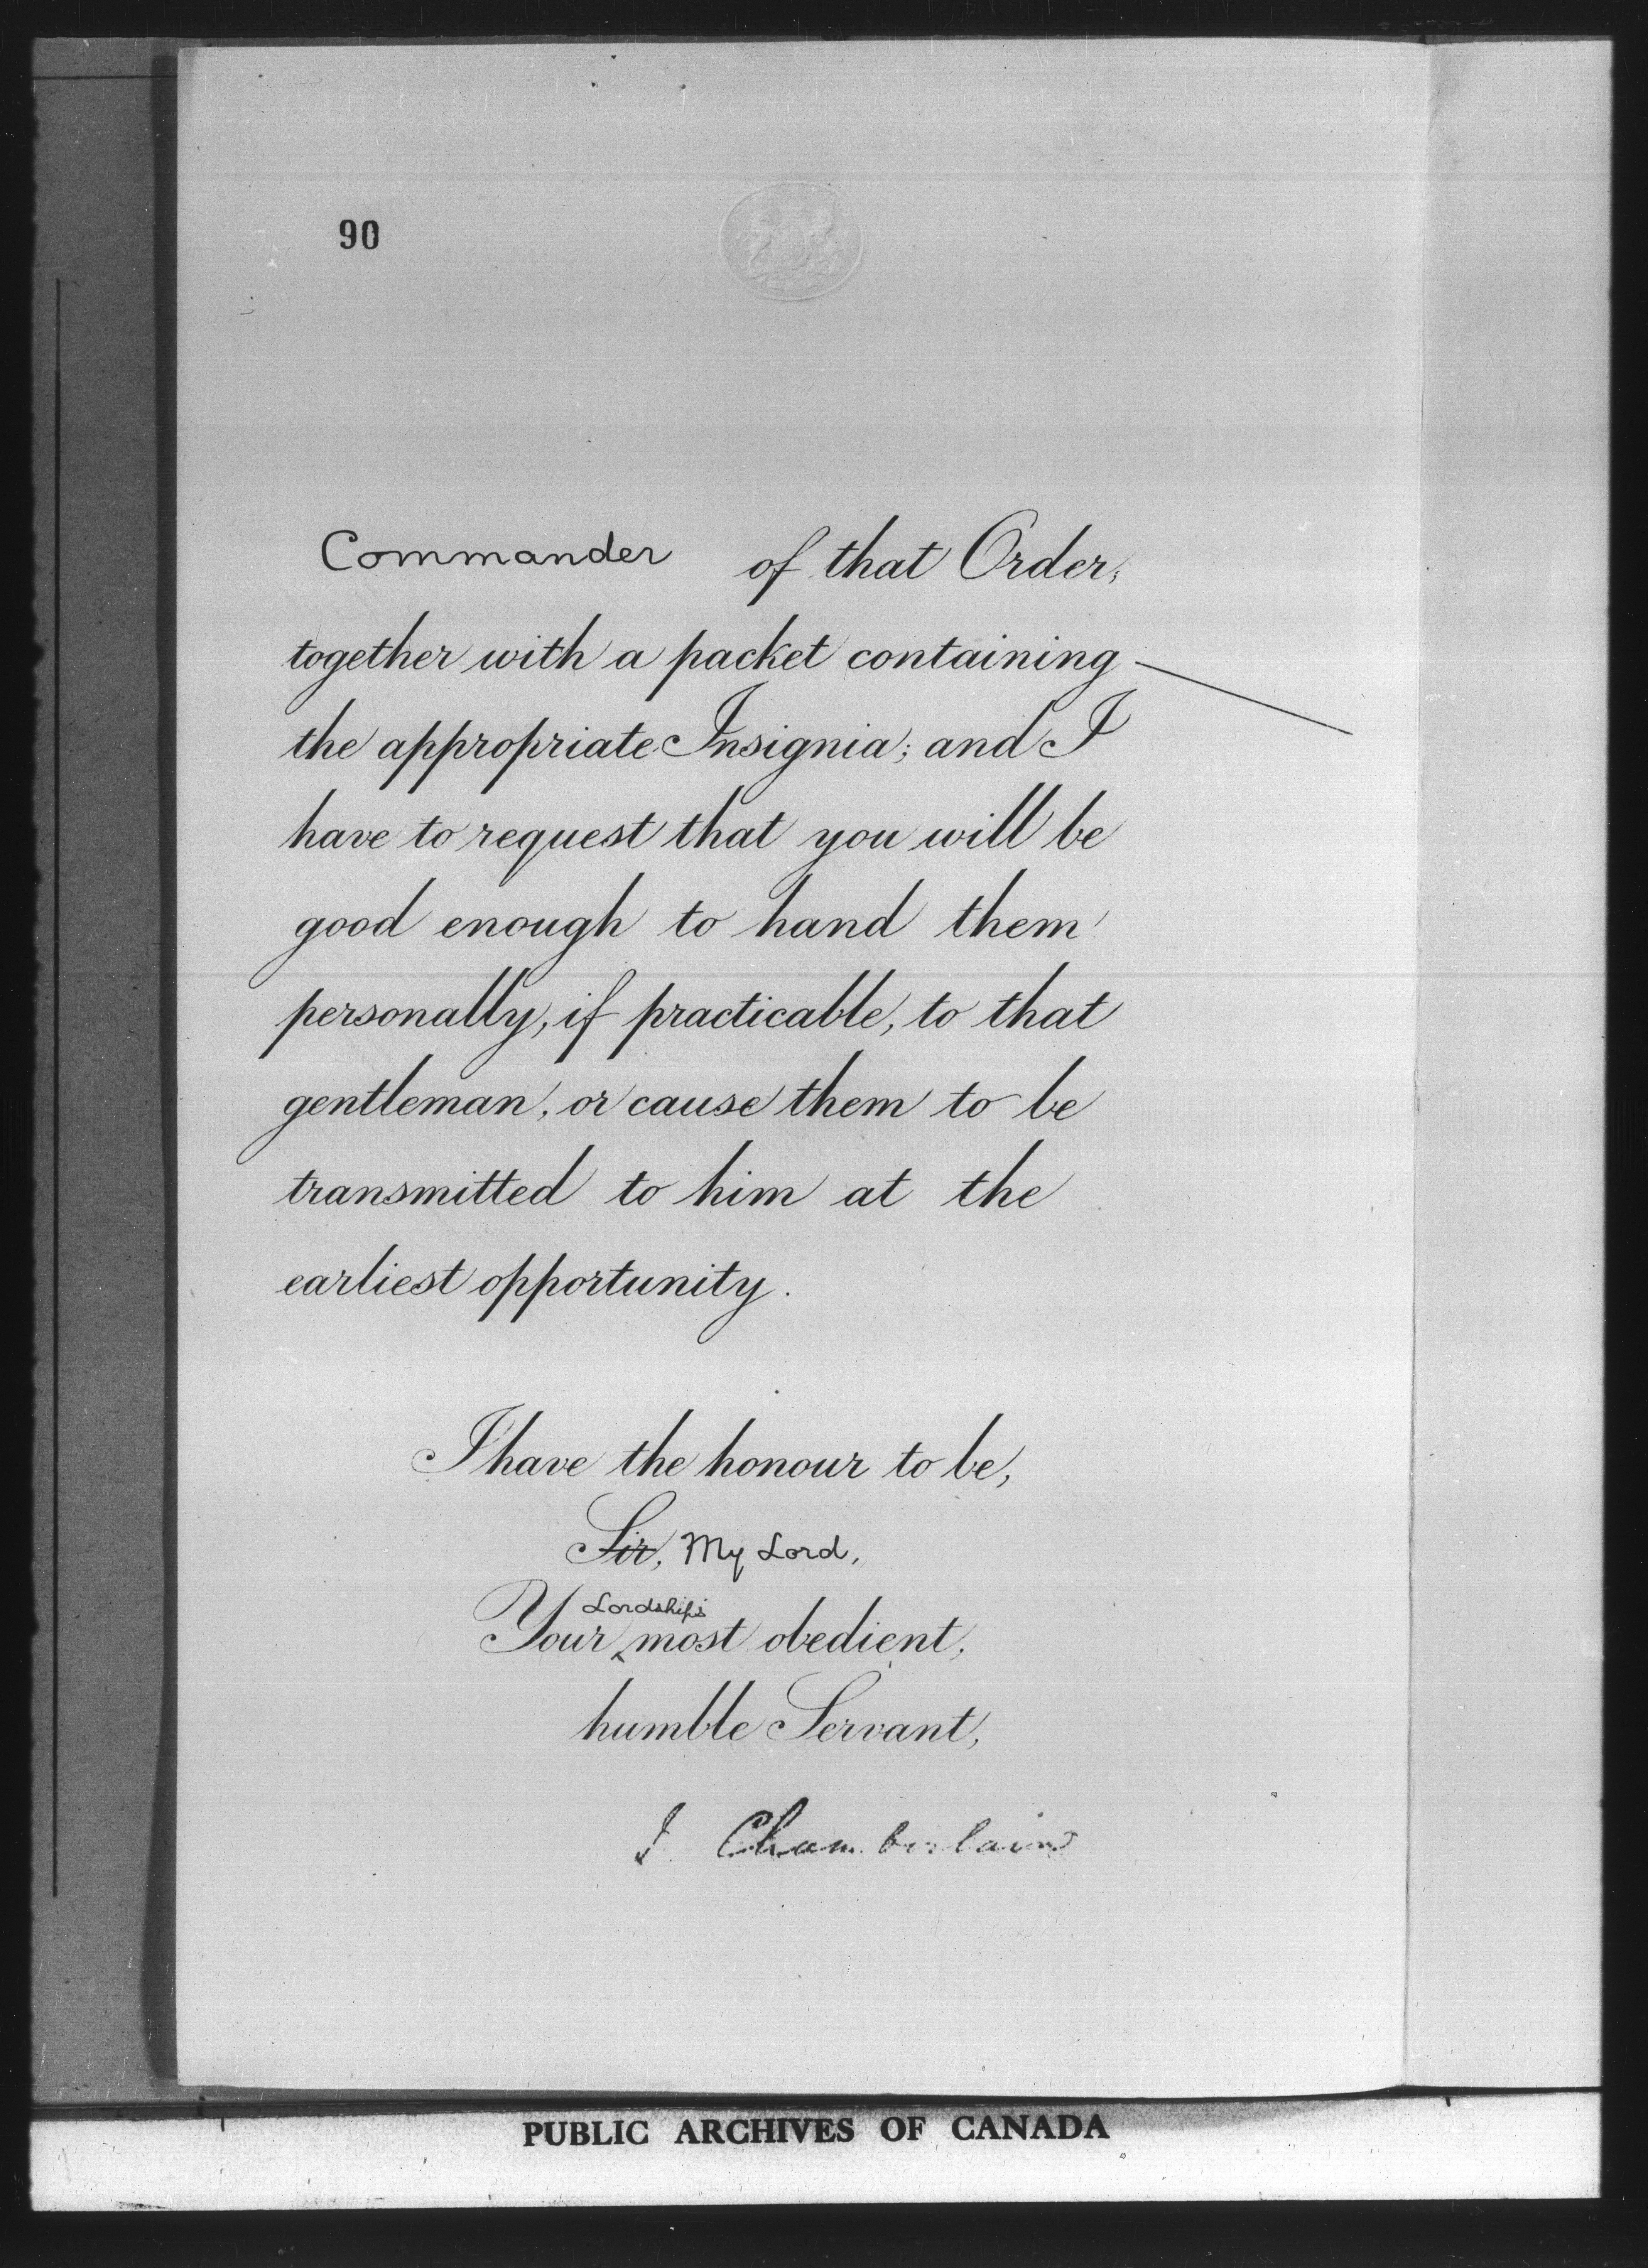 90
Commander of that Order,
together with a packet containing
the appropriate Insignia; and I
have to request that you will be
good enough to hand them
personally, if practicable, to that
gentleman, or cause them to be
transmitted to him at the
earliest opportunity.
I have the honour to be,
Sir, My Lord,
Lordship's
Your most obedient,
humble Servant,
J. Chamberlain
PUBLIC ARCHIVES OF CANADA